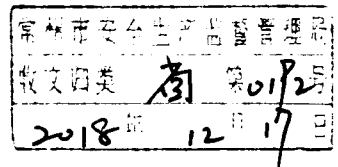 常州市安全生产监督管理局
收文归类 第0192号
2018年 12月 17日